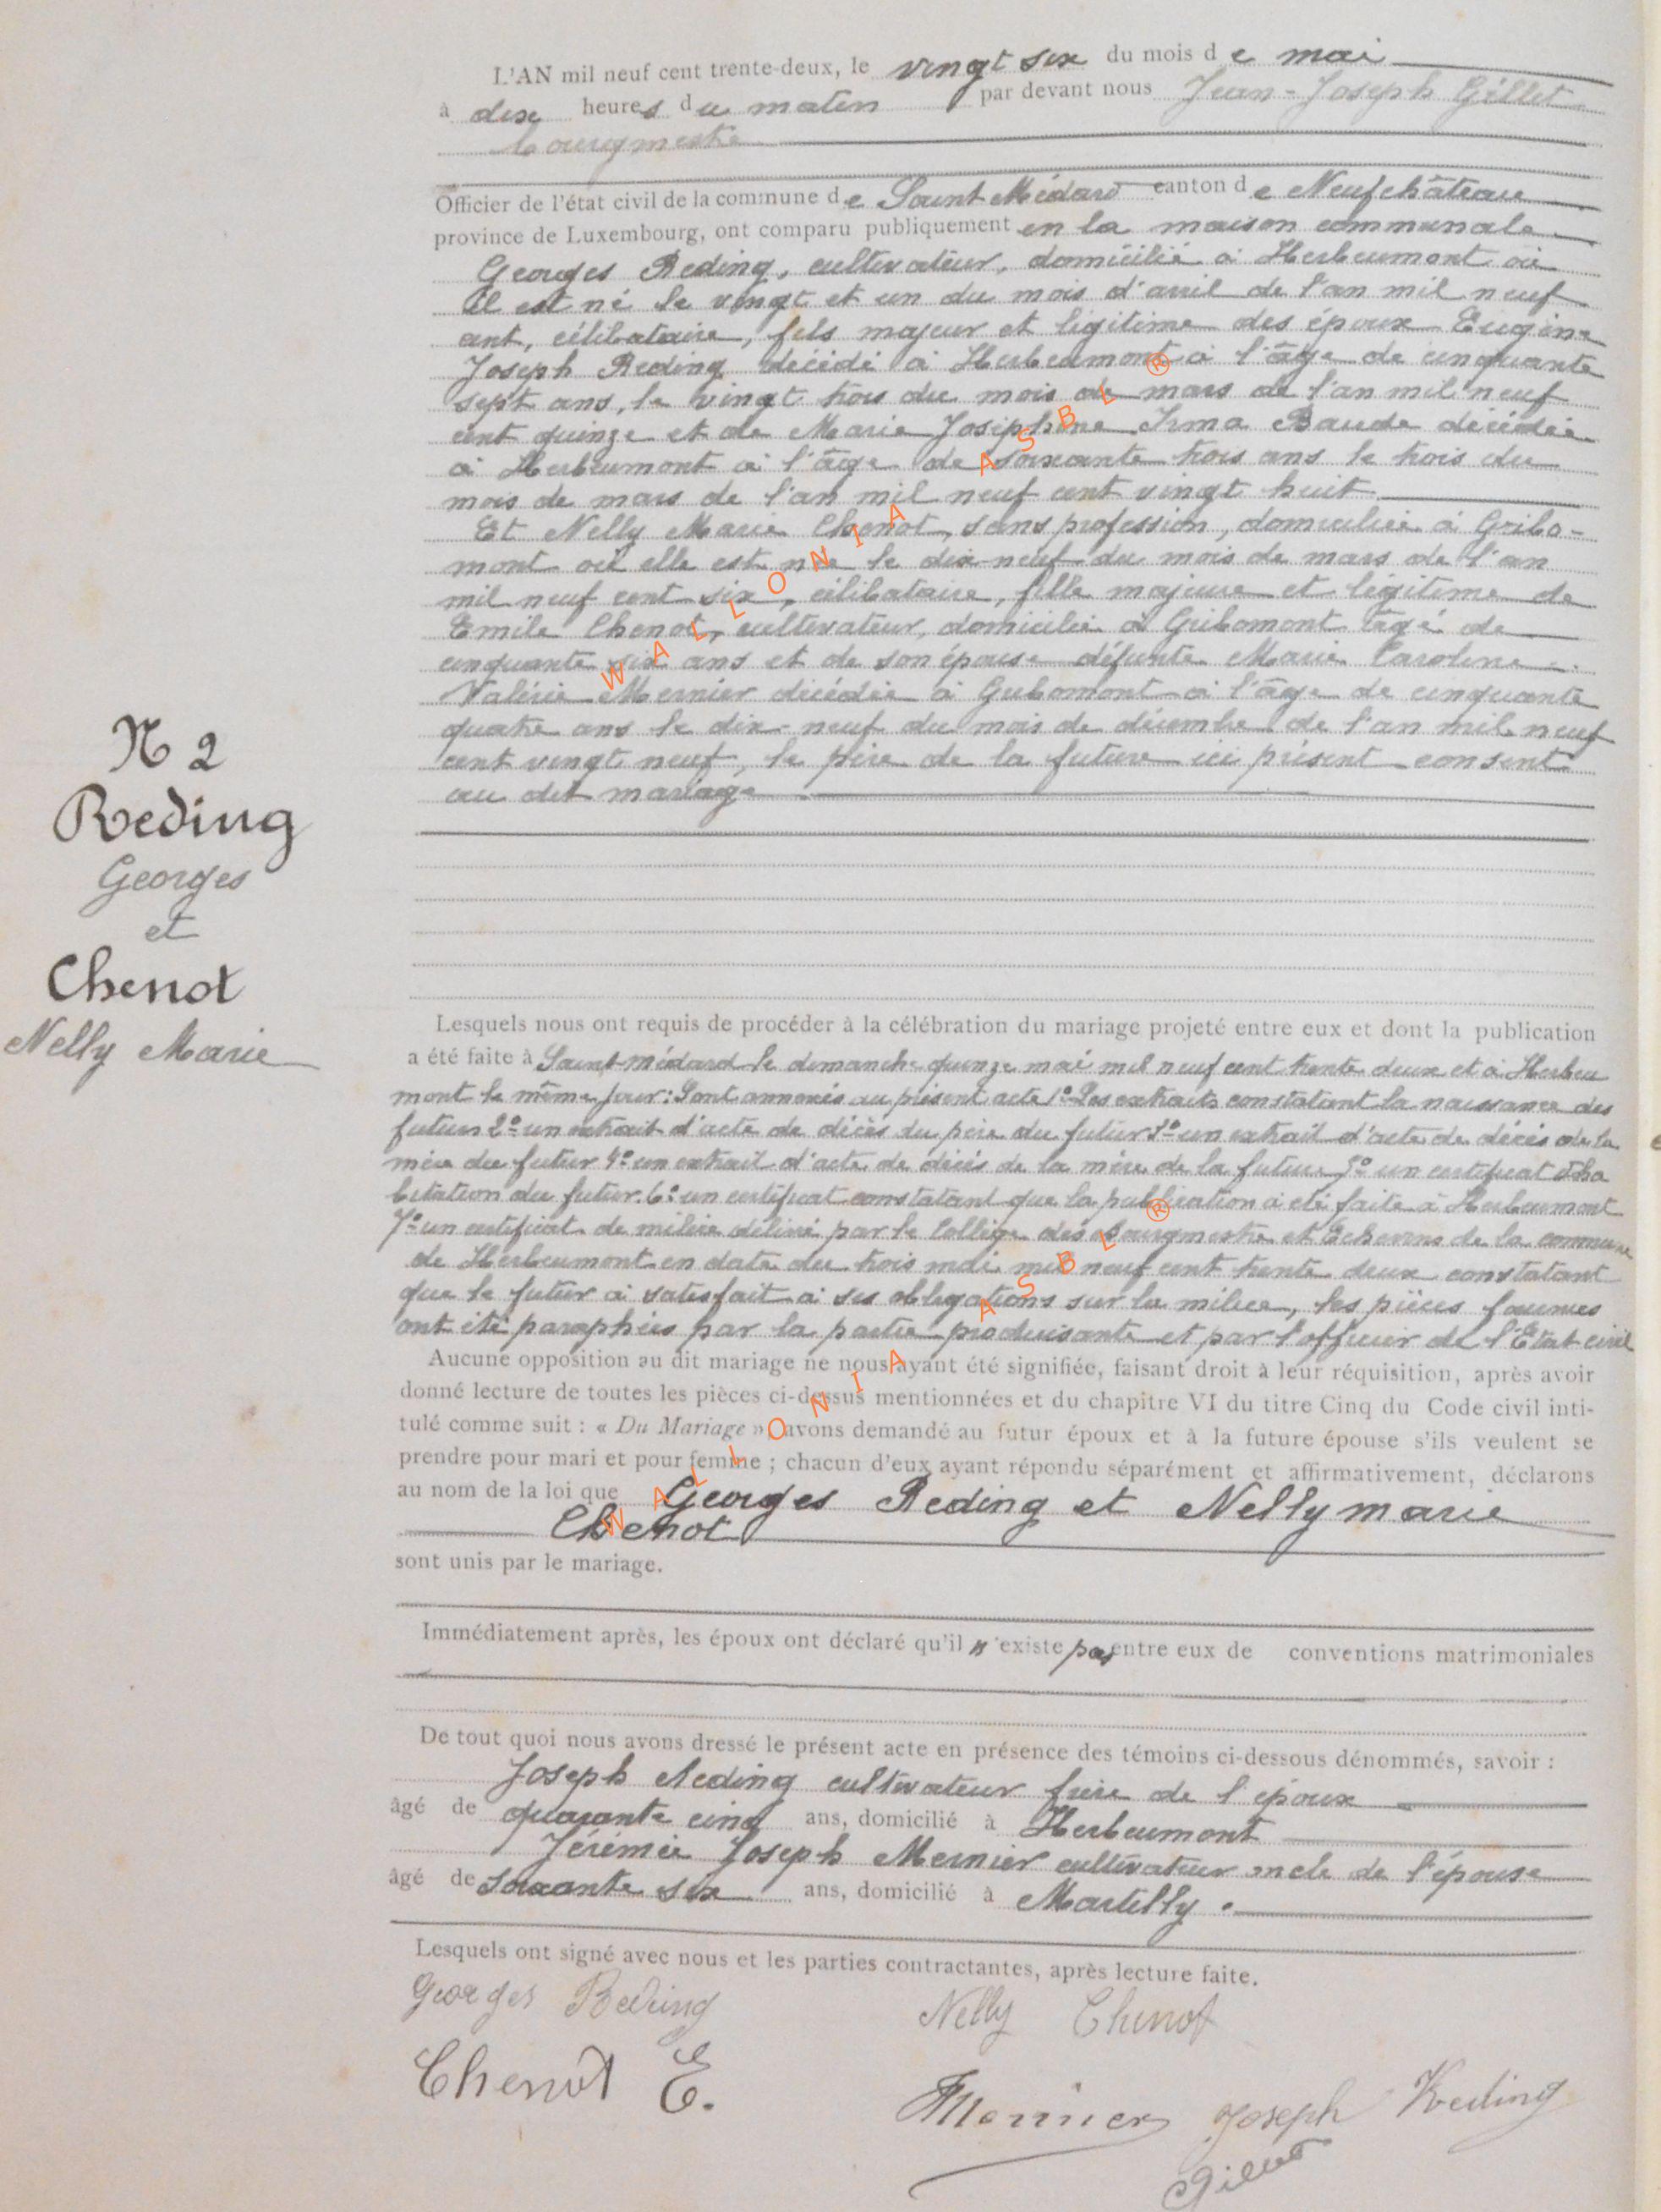 L'AN mil neuf cent trente-deux, le vingt six du mois de mai
à dix heures du matin par devant nous Jean-Joseph Gillet
bourgmestre
Officier de l'état civil de la commune de Saint Médard canton de Neufchâteau
province de Luxembourg, ont comparu publiquement en la maison communale
Georges Reding, cultivateur, domicilié à Herbeumont où
il est né le vingt et un du mois d'avril de l'an mil neuf
cent, célibataire, fils majeur et légitime des époux Eugène
Joseph Reding décédé à Herbeumont à l'âge de cinquante
sept ans, le vingt trois du mois de mars de l'an mil neuf
cent quinze et de Marie Joséphine Irma Baude décédée
à Herbeumont à l'âge de soixante trois ans le trois du
mois de mars de l'an mil neuf cent vingt huit
Et Nelly Marie Chenot, sans profession, domiciliée à Gribo-
mont où elle est née le dix neuf du mois de mars de l'an
mil neuf cent six, célibataire, fille majeure et légitime de
Emile Chenot, cultivateur, domicilié à Gribomont âgé de
cinquante six ans et de son épouse défunte Marie Caroline
Valérie Mernier décédée à Gribomont à l'âge de cinquante
quatre ans le dix-neuf du mois de décembre de l'an mil neuf
cent vingt neuf, le père de la future ici présent consent
au dit mariage
N 2
Reding
Georges
et
Chenot
Nelly Marie
Lesquels nous ont requis de procéder à la célébration du mariage projeté entre eux et dont la publication
a été faite à Saint-médard le dimanche quinze mai mil neuf cent trente deux et à Herbeu
mont le même jour: Sont annexés au présent acte 1° Les extraits constatant la naissance des
futurs 2° un extrait d'acte de décès du père du futur 3° un extrait d'acte de décès de la
mère du futur 4° un extrait d'acte de décès de la mère de la future 5° un certificat d'ha
bitation du futur. 6° un certificat constatant que la publication a été faite à Herbeumont
7° un certificat de milice délivré par le Collège des Bourgmestre et Echevins de la commune
de Herbeumont en date du trois mai mil neuf cent trente deux constatant
que le futur a satisfait à ses obligations sur la milice, les pièces fournies
ont été paraphées par la partie produisante et par l'officier de l'Etat civil
Aucune opposition au dit mariage ne nous ayant été signifiée, faisant droit à leur réquisition, après avoir
donné lecture de toutes les pièces ci-dessus mentionnées et du chapitre VI du titre Cinq du Code civil inti-
tulé comme suit : « Du Mariage » avons demandé au futur époux et à la future épouse s'ils veulent se
prendre pour mari et pour femme ; chacun d'eux ayant répondu séparément et affirmativement, déclarons
au nom de la loi que Georges Reding et Nelly marie
Chenot
sont unis par le mariage.
Immédiatement après, les époux ont déclaré qu'il n'existe pas entre eux de conventions matrimoniales
De tout quoi nous avons dressé le présent acte en présence des témoins ci-dessous dénommés, savoir :
Joseph Reding cultivateur frère de l'époux
âgé de quarante cinq ans, domicilié à Herbeumont
Jérémie Joseph Mernier cultivateur oncle de l'épouse
âgé de soixante six ans, domicilié à Martilly.
Lesquels ont signé avec nous et les parties contractantes, après lecture faite.
Georges Reding Nelly Chenot
Chenot E. Mernier Joseph Reding
Gillet
WALLONIA ASBL ®
WALLONIA ASBL ®